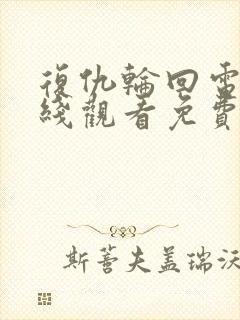 復仇輪回電
綫觀看免費
斯蒂夫盖瑞沃